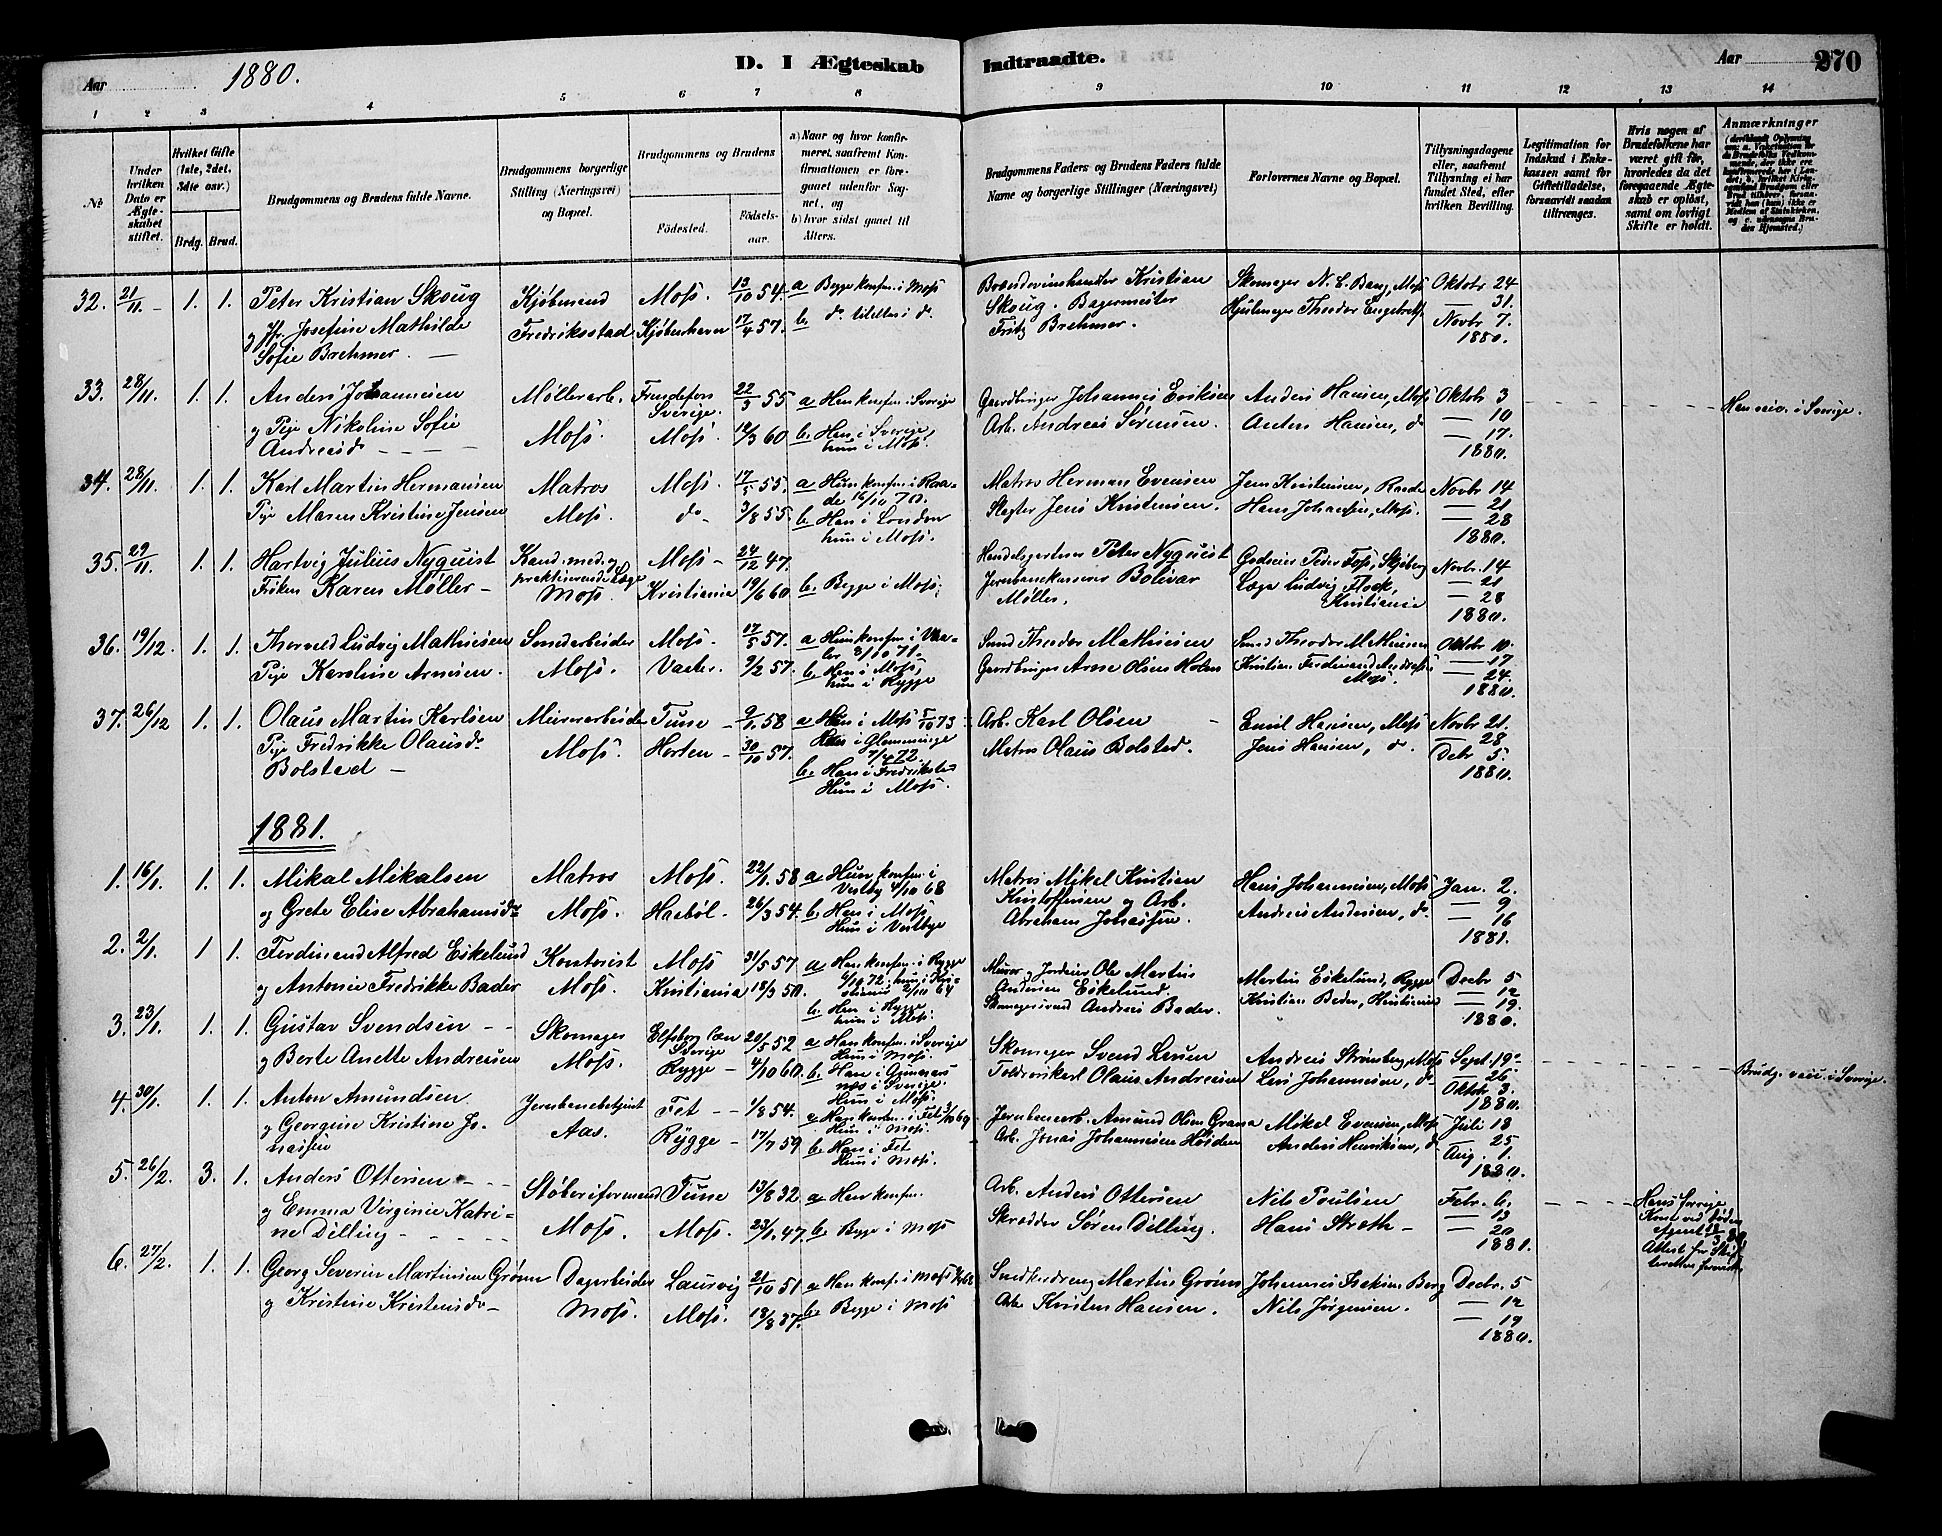 Aar 1880. D. I Ægteskab Indtraadte. Aar 270
1 2 3 4 5 6 7 8 9 10 11 12 13 14
No.
Under hvilken Dato er Ægteskabet stiftet.
Hvilket Gifte (1ste, 2det, 3die osv.)
Brdg. Brud.
Brudgommens og Brudens fulde Navne.
Brudgommens borgerlige Stilling (Næringsvei) og Bopæl.
Brudgommens og Brudens
Fødested. Fødselsaar.
a) Naar og hvor konfirmeret, saafremt Konfirmationen er foregaaet udenfor Sognet, og
b) hvor sidst gaaet til Alters.
Brudgommens Faders og Brudens Faders fulde Navne og borgerlige Stillinger (Næringsvei)
Forlovernes Navne og Bopæl.
Tillysningsdagene eller, saafremt Tillysning ei har fundet Sted, efter hvilken Bevilling.
Legitimation for Indskud i Enkekassen samt for Giftetilladelse, forsaavidt saadan tiltrænges.
Hvis nogen af Brudefolkene har været gift før, hvorledes da det foregaaende Ægteskab er opløst, samt om lovligt Skifte er holdt.
Anmærkninger
32. 21/11 1. 1. Peter Kristian Skoug Kjøbmand Moss. 13/10 54. a Begge konfm. i Moss Brændevinshandler Kristian Skomager N. C. Bang, Moss Oktobr 24
og Josefine Mathilde Fredriksstad Kjøbenhavn 17/4 57. b. do. i do. Skoug. Bagermester Hjulmager Theodor — 31.
Sofie Brehmer. Fritz Brehmer. Novbr 7.
1880.
33. 28/11. 1. 1. Anders Johannesen Møllerarb. Sverige. 22/3 55 a Han konfm. i Sverige Gaardbruger Johannes Eriksen Anders Hansen, Moss Oktobr 3 Han vac. i Sverige.
og Pige Nikoline Sofie Moss. Moss. 12/3 60 b. Han i Sverige, Arb. Andreas Sørensen Anton Hansen, do — 10
Andreasd. hun i Moss. — 17.
1880.
34. 28/11. 1. 1. Karl Martin Hermansen Matros Moss. 17/5 55. a Hun konfm. i Raade 16/10 70. Matros Herman Evensen Jens Kristensen, Raade Novbr 14
Pige Maren Kristine Jensen Moss. do 3/8 55. b. Han i London Slagter Jens Kristensen. Hans Johansen, Moss. — 21
hun i Moss. — 28
1880.
35. 29/11. 1. 1. Hartvig Julius Nyquist Kand. med. og Moss 24/12 47. Handelsgartner Peter Nyquist Peder Foss, Skjeberg Novbr. 14
Frøken Karen Møller praktiserende Læge Kristiania 19/6 60. b. Begge i Moss. Jernbanekasserer Bolivar Læge Ludvig — 21
Moss. Møller. Kristiania — 28
1880.
36. 19/12. 1. 1. Thorvald Ludvig Mathiesen Moss. 17/5 57. a Hun konfm. i Vaaler 8/10 71. Smed Theodor Mathiesen Smed Theodor Mathiesen Oktobr 10.
Pige Karoline Arnesen. Moss. Vaaler. 9/2 57. b. Han i Moss, Gaardbruger Arne Olsen Holen Kristian Ferdinand — 17
hun i Rygge Moss. — 24.
1880.
37. 26/12 1. 1. Olaus Martin Karlsen Murerarbeider Tune 9/1. 58 a Han i Moss 5/10 73 Arb. Karl Olsen Emil Hansen, Moss Novbr 21.
Pige Fredrikke Olausd. Moss. Horten 30/10 57. Hun i Glemminge 7/4 72. Matros Olaus Bolstad. Jens Hansen, do. — 28
Bolstad b. Han i Fredriksstad Debr 5.
Hun i Moss. 1880.
1881.
1. 16/1. 1. 1. Mikal Mikalsen Matros Moss. 22/1. 58 a Hun konfm. i Matros Mikal Kristian Hans Johannesen, Moss Jan. 2.
og Grete Elise Abrahamsdr Moss. Haabøl. 26/3 54. Vestby 4/10 68 Kristoffersen og Arb. Andreas Andersen, do. — 9
b. Han i Moss Abraham Johansen. — 16
Hun i Vestby 1881.
2. 2/1. 1 1. Ferdinand Alfred Eskelund Kontorist Moss 31/5 57. a Han konfm. i Rygge Murer og Jordeier Ole Martin Martin Eskelund, Rygge Decbr 5
og Antonie Fredrikke Bader Moss. Kristiania 18/3 50. 6/10 72, hun i Kristiania 2/10 64 Andersen Eskelund. Kristian Bader, Kristiania — 12
b. Han i Rygge Andreas Bader. — 19.
hun i Moss. 1880.
3. 23/1. 1. 1. Gustav Svendsen Skomager Elfsborg Læn Sverige 20/5 52 a Han konfm. i Sverige Skomager Svend Andreas Strømberg, Moss Sept. 19.
og Berte Anette Andreasen Moss. Rygge 4/10 60. Hun i Moss. Olaus Andreasen Lars Johannesen, do — 26. Brudg. vac. i Sverige.
b. Han i i Sverige. Oktobr 3.
Hun i Moss. 1880.
4. 30/1. 1. 1. Anton Amundsen Jernbanebetjent Fet 1/8 54. a Han konfm. i Fet 69 Jernbanearb. Amund Olsen Mikal Evensen, Moss Juli 18
og Georgine Kristine Jo- Aas. Rygge 17/7 59 Hun i Moss. Arb. Jonas Johannesen Anders Henriksen, do — 25
nassen b. Han i Fet Aug. 1.
Hun i Moss. 1880.
5. 26/2. 3. 1. Anders Ottersen Støberiformand Tune 13/8 32. a Han konfm. Arb. Anders Ottersen Nils Poulsen Febr. 6. Hans forrige
og Emma Virginie Katri- Moss. Moss. 23/1. 47. b. Begge i Moss Skrædder Søren Dilling. Hans Stroth — 13 Kone ved Døden
ne Dilling — 20
1881.
6. 27/2. 1. 1. Georg Severin Martinsen Grønn Dagarbeider Laurvig 21/10 51 a Han konfm. i Moss Martin Grønn Johannes Isaksen Berg Decbr. 5
og Kristine Kristensdr Moss. Moss. 18/8 37. b. Begge i Moss Arb. Kristen Hansen. Nils Jørgensen. — 12
— 19
1880.